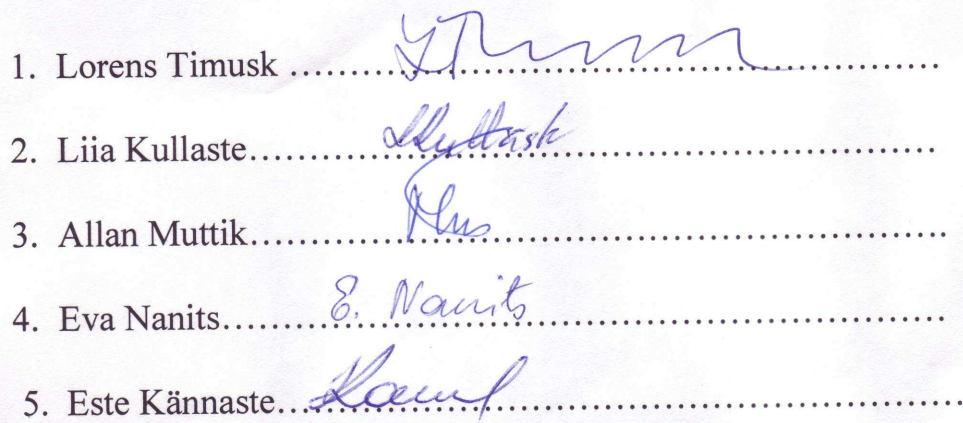 1. Lorens Timusk ................................................
2. Liia Kullaste................................................
3. Allan Muttik................................................
4. Eva Nanits........E. Nanits................................
5. Este Kännaste................................................